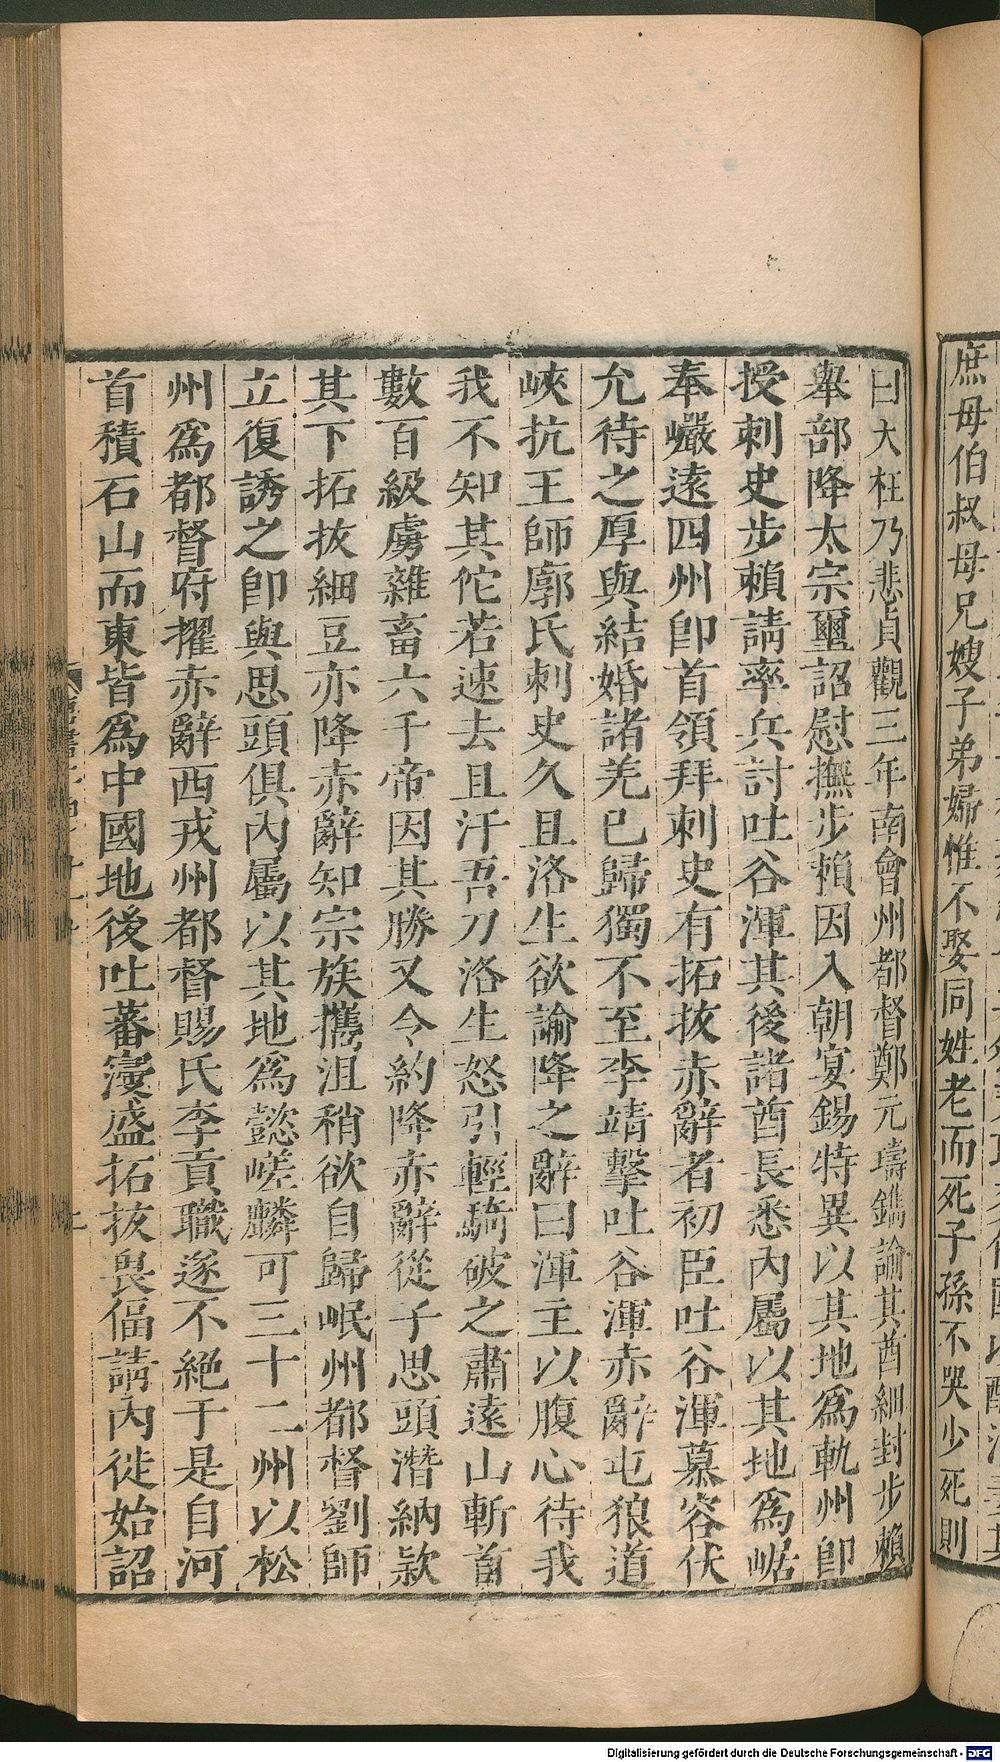 庶母伯叔母兄嫂子弟婦惟不娶同姓老而死子孫不哭少死則
曰大枉乃悲貞觀三年南會州都督鄭元璹鐫諭其酋細封步賴
舉部降太宗璽詔慰撫步賴因入朝宴錫特異以其地爲軌州卽
授刺史步賴請率兵討吐谷渾其後諸酋長悉內屬以其地爲崌
奉巖遠四州卽首領拜刺史有拓拔赤辭者初臣吐谷渾慕容伏
允待之厚與結婚諸羌已歸獨不至李靖擊吐谷渾赤辭屯狼道
峽抗王師廓氏刺史久且洛生欲諭降之辭曰渾主以腹心待我
我不知其佗若速去且汙吾刀洛生怒引輕騎破之肅遠山斬首
數百級虜雜畜六千帝因其勝又令約降赤辭從子思頭潛納款
其下拓拔細豆亦降赤辭知宗族攜沮稍欲自歸岷州都督劉師
立復誘之卽與思頭俱內屬以其地爲懿嵯麟可三十二州以松
州爲都督府擢赤辭西戎州都督賜氏李貢職遂不絕于是自河
首積石山而東皆爲中國地後吐蕃寖盛拓拔畏偪請內徙始詔
Digitalisierung gefördert durch die Deutsche Forschungsgemeinschaft - DFG